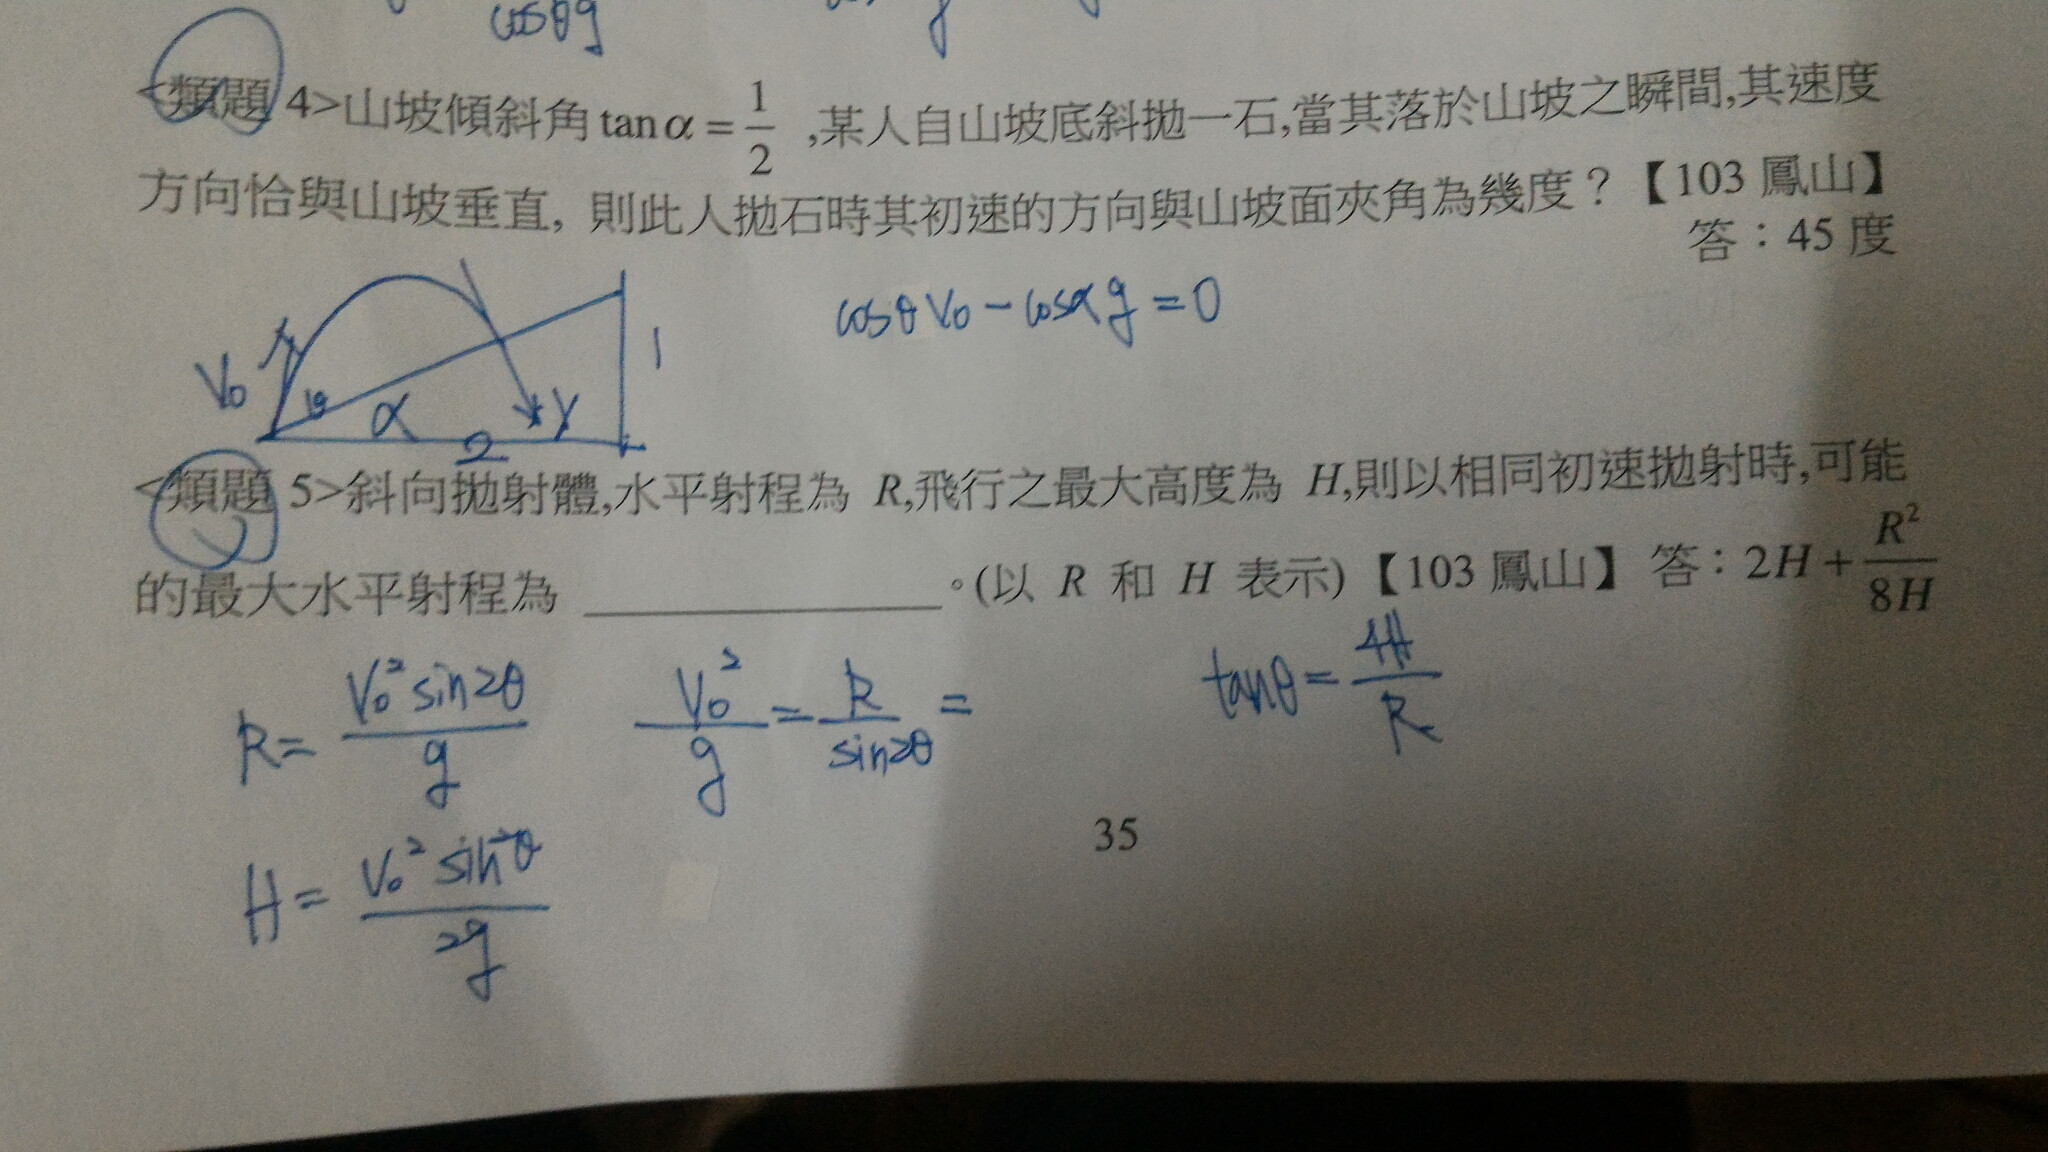 cosθg
<類題 4>山坡傾斜角 tan α = 1/2 ,某人自山坡底斜拋一石,當其落於山坡之瞬間,其速度
方向恰與山坡垂直, 則此人拋石時其初速的方向與山坡面夾角為幾度？【103 鳳山】
答：45 度
cosθ V₀ − cosα g = 0
V₀ θ α 2 1
<類題 5>斜向拋射體,水平射程為 R,飛行之最大高度為 H,則以相同初速拋射時,可能
的最大水平射程為 ＿＿＿＿＿＿。(以 R 和 H 表示)【103 鳳山】 答：2H + R²/8H
R = V₀² sin2θ / g    V₀² / g = R / sin2θ =    tanθ = 4H / R
H = V₀² sin²θ / 2g
35